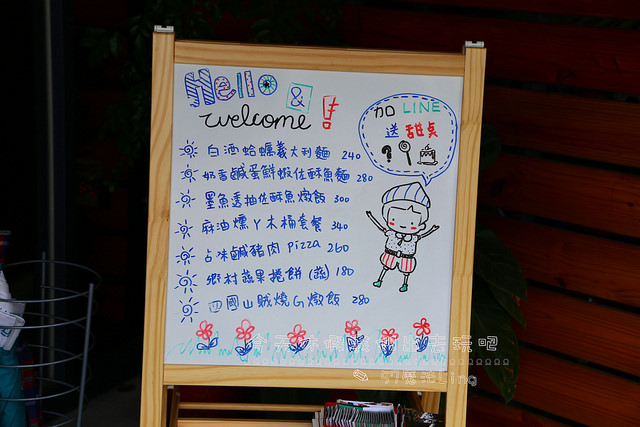 Hello
&
welcome!
加 LINE
送 甜桌
?
白酒蛤蠣義大利麵 240
奶香鹹蛋鮮蝦佐酥魚麵 280
墨魚透抽佐酥魚燉飯 300
麻油燻ㄚ木桶套餐 340
占味鹹豬肉 pizza 260
鄉村蔬果捲餅 (蔬) 180
四國山賊燒G燉飯 280